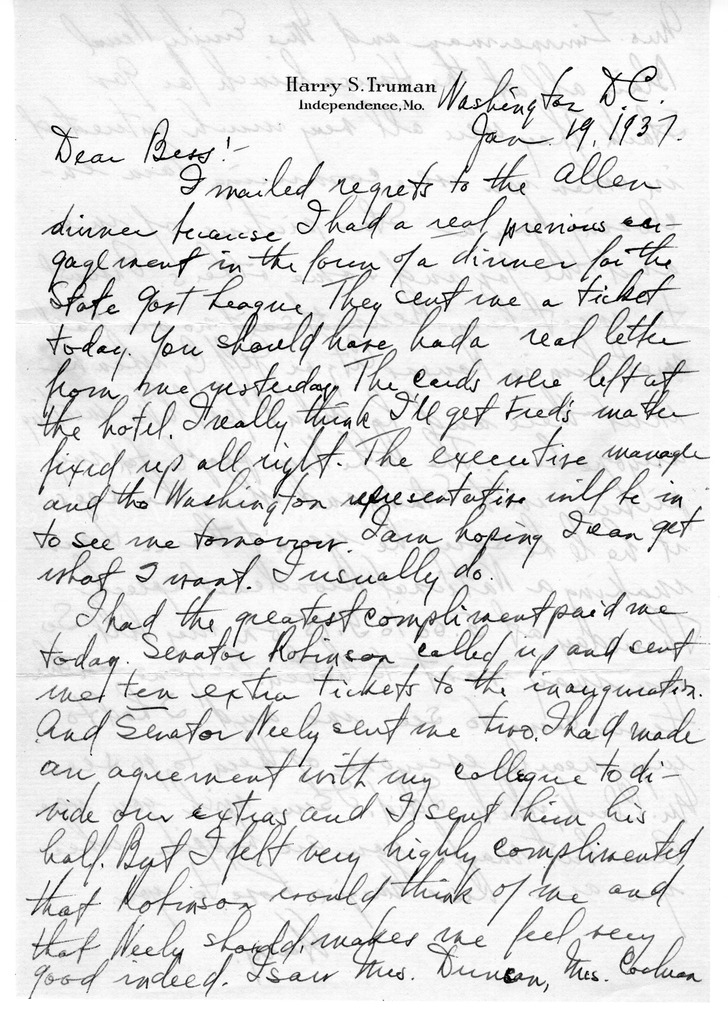 Harry S. Truman
Independence, Mo.
Washington D.C.
Jan. 19, 1937.
Dear Bess:-
I mailed regrets to the Allen
dinner because I had a real previous en-
gagement in the form of a dinner for the
State Post League. They sent me a ticket
today. You should have had a real letter
from me yesterday. The cards were left at
the hotel. I really think I'll get Fred's matter
fixed up all right. The executive manager
and the Washington representative will be in
to see me tomorrow. I am hoping I can get
what I want. I usually do.
I had the greatest compliment paid me
today. Senator Robinson called up and sent
me ten extra tickets to the inauguration.
And Senator Neely sent me two. I had made
an agreement with my colleague to di-
vide our extras and I sent him his
half. But I felt very highly complimented
that Robinson would think of me and
that Neely should, makes me feel very
good indeed. I saw Mrs. Duncan, Mrs.